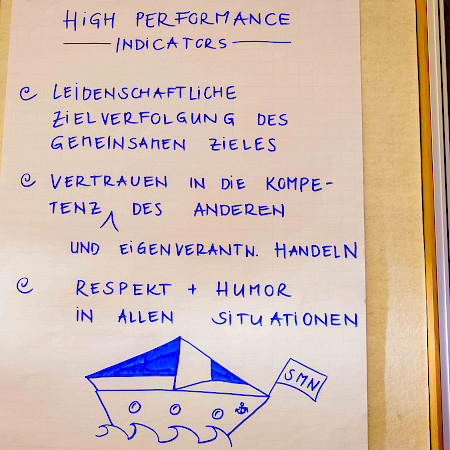 HiGH PERFORMANCE
INDICATORS
LEiDENSCHAFTLiCHE
ZiELVERFOLGUNG DES
GEMEiNSAMEN ZiELES
VERTRAUEN IN DiE KOMPE-
TENZ DES ANDEREN
UND EiGENVERANTW. HANDELN
RESPEKT + HUMOR
iN ALLEN SiTUATiONEN
SMN